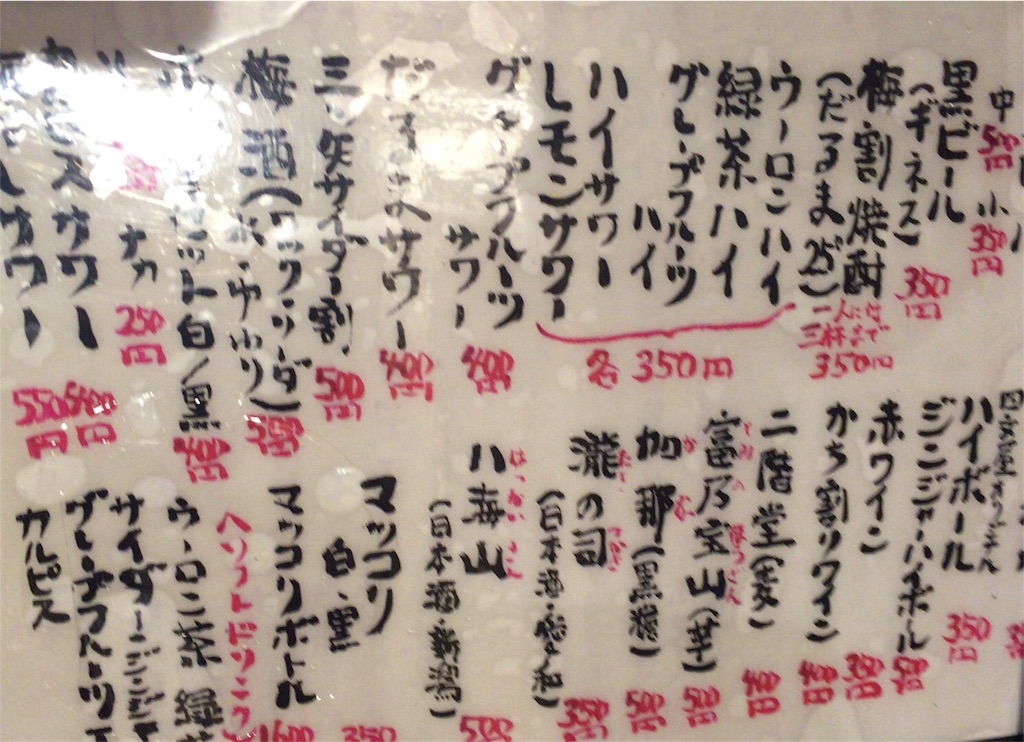 中 500円 小 350円
黒ビール
(ギネス) 350円
梅割焼酎
(だるま25°) 一人には
三杯まで
350円
ウーロンハイ
緑茶ハイ
グレープフルーツ
ハイ
ハイサワー
レモンサワー
各350円
グレープフルーツ
サワー 400円
サワー 400円
三ッ矢サイダー割 500円
梅酒(ロック・ソーダ)
白/黒 400円
ナカ 250円
サワー 400円
サワー 550円
ハイボール 350円
ジンジャーハイボール 500円
赤ワイン 350円
かち割りワイン 400円
二階堂(麦) 400円
富乃宝山(芋) 500円
加那(黒糖) 500円
瀧の司
(日本酒・愛知) 350円
八海山 はっかいさん
(日本酒・新潟) 500円
マッコリ
白・黒 350
マッコリボトル 1600
ソフトドリンク
ウーロン茶 緑茶
サイダー ジンジャ
グレープフルーツ
カルピス